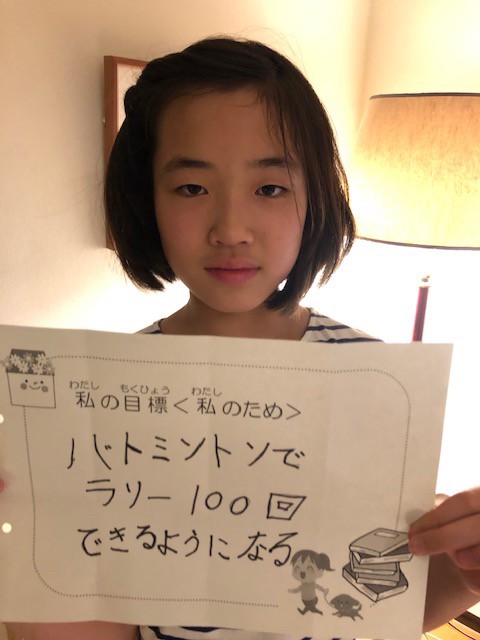 わたし もくひょう わたし
私の目標<私のため>
バトミントンで
ラリー100回
できるようになる